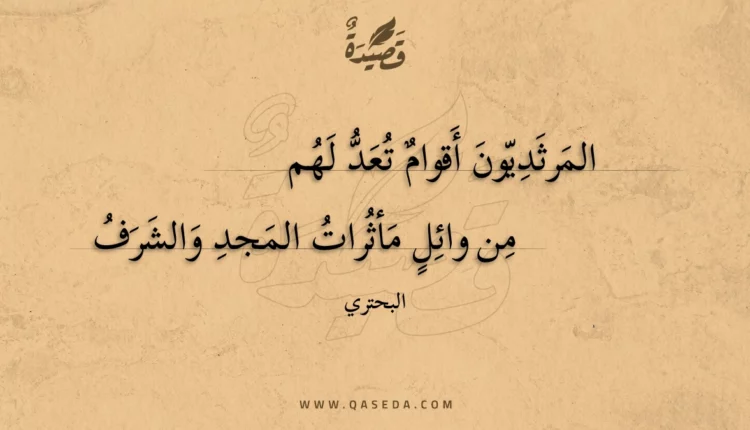 قَصِيدَةٌ
المَرثَدِيّونَ أَقوامٌ تُعَدُّ لَهُم
مِن وائِلٍ مَأثُراتُ المَجدِ وَالشَرَفُ
البحتري
WWW.QASEDA.COM